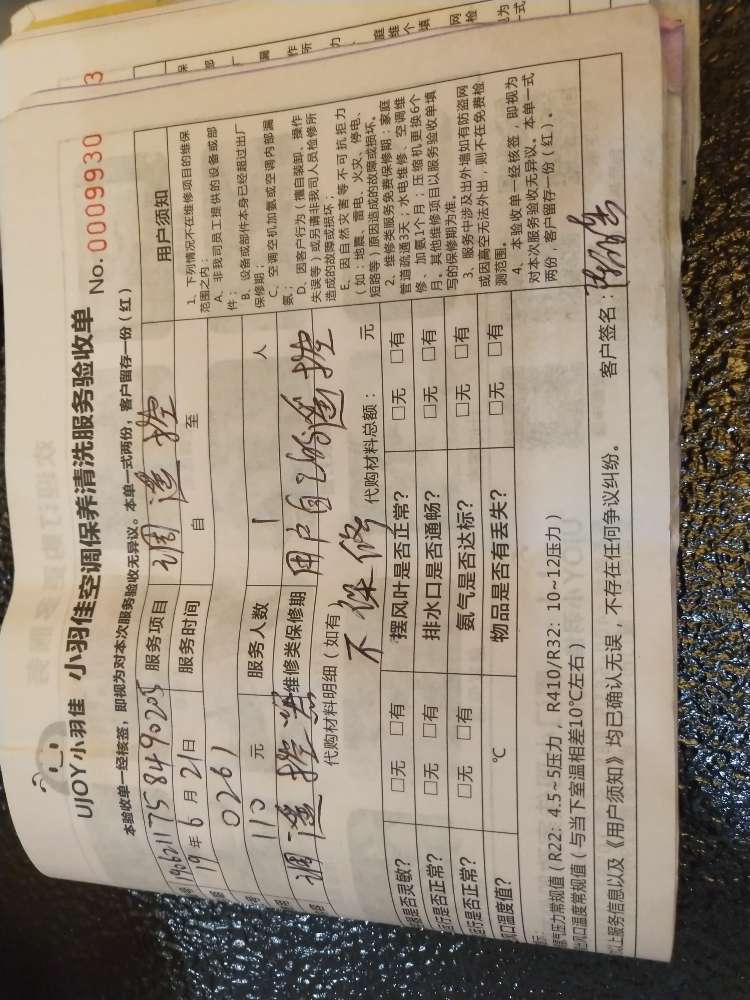 UJOY小羽佳 小羽佳空调保养清洗服务验收单 No. 0009930
本验收单一经核签，即视为对本次服务验收无异议。本单一式两份，客户留存一份（红）
服务项目 调遥控
19年6月21日 服务时间 自 至
0261
110 元 服务人数 1 人
调遥控器 维修类保修期 用户自己的遥控
代购材料明细（如有） 不保修 代购材料总额： 元
是否灵敏？ □无 □有 摆风叶是否正常？ □无 □有
行是否正常？ □无 □有 排水口是否通畅？ □无 □有
行是否正常？ □无 □有 氨气是否达标？ □无 □有
风口温度值？ ℃ 物品是否有丢失？ □无 □有
用户须知
1、下列情况不在维修项目的维保
范围之内；
A、非我司员工提供的设备或部
件；
B、设备或部件本身已经超过出厂
保修期；
C、空调空机加氨或空调内部漏
氨；
D、因客户行为（擅自装卸、操作
失误等）或另请非我司人员检修所
造成的故障或损坏；
E、因自然灾害等不可抗拒力
（如：地震、雷电、火灾、停电、
短路等）原因造成的故障或损坏。
2、维修类服务免费保修期：家庭
管道疏通3天；水电维修、空调维
修、加氨1个月；压缩机更换6个
月。其他维修项目以服务验收单填
写的保修期为准。
3、服务中涉及出外墙如有防盗网
或因高空无法外出，则不在免费检
测范围。
4、本验收单一经核签，即视为
对本次服务验收无异议。本单一式
两份，客户留存一份（红）。
气压力常规值（R22：4.5~5压力，R410/R32：10~12压力）
风口温度常规值（与当下室温相差10℃左右）
以上服务信息以及《用户须知》均已确认无误，不存在任何争议纠纷。 客户签名：